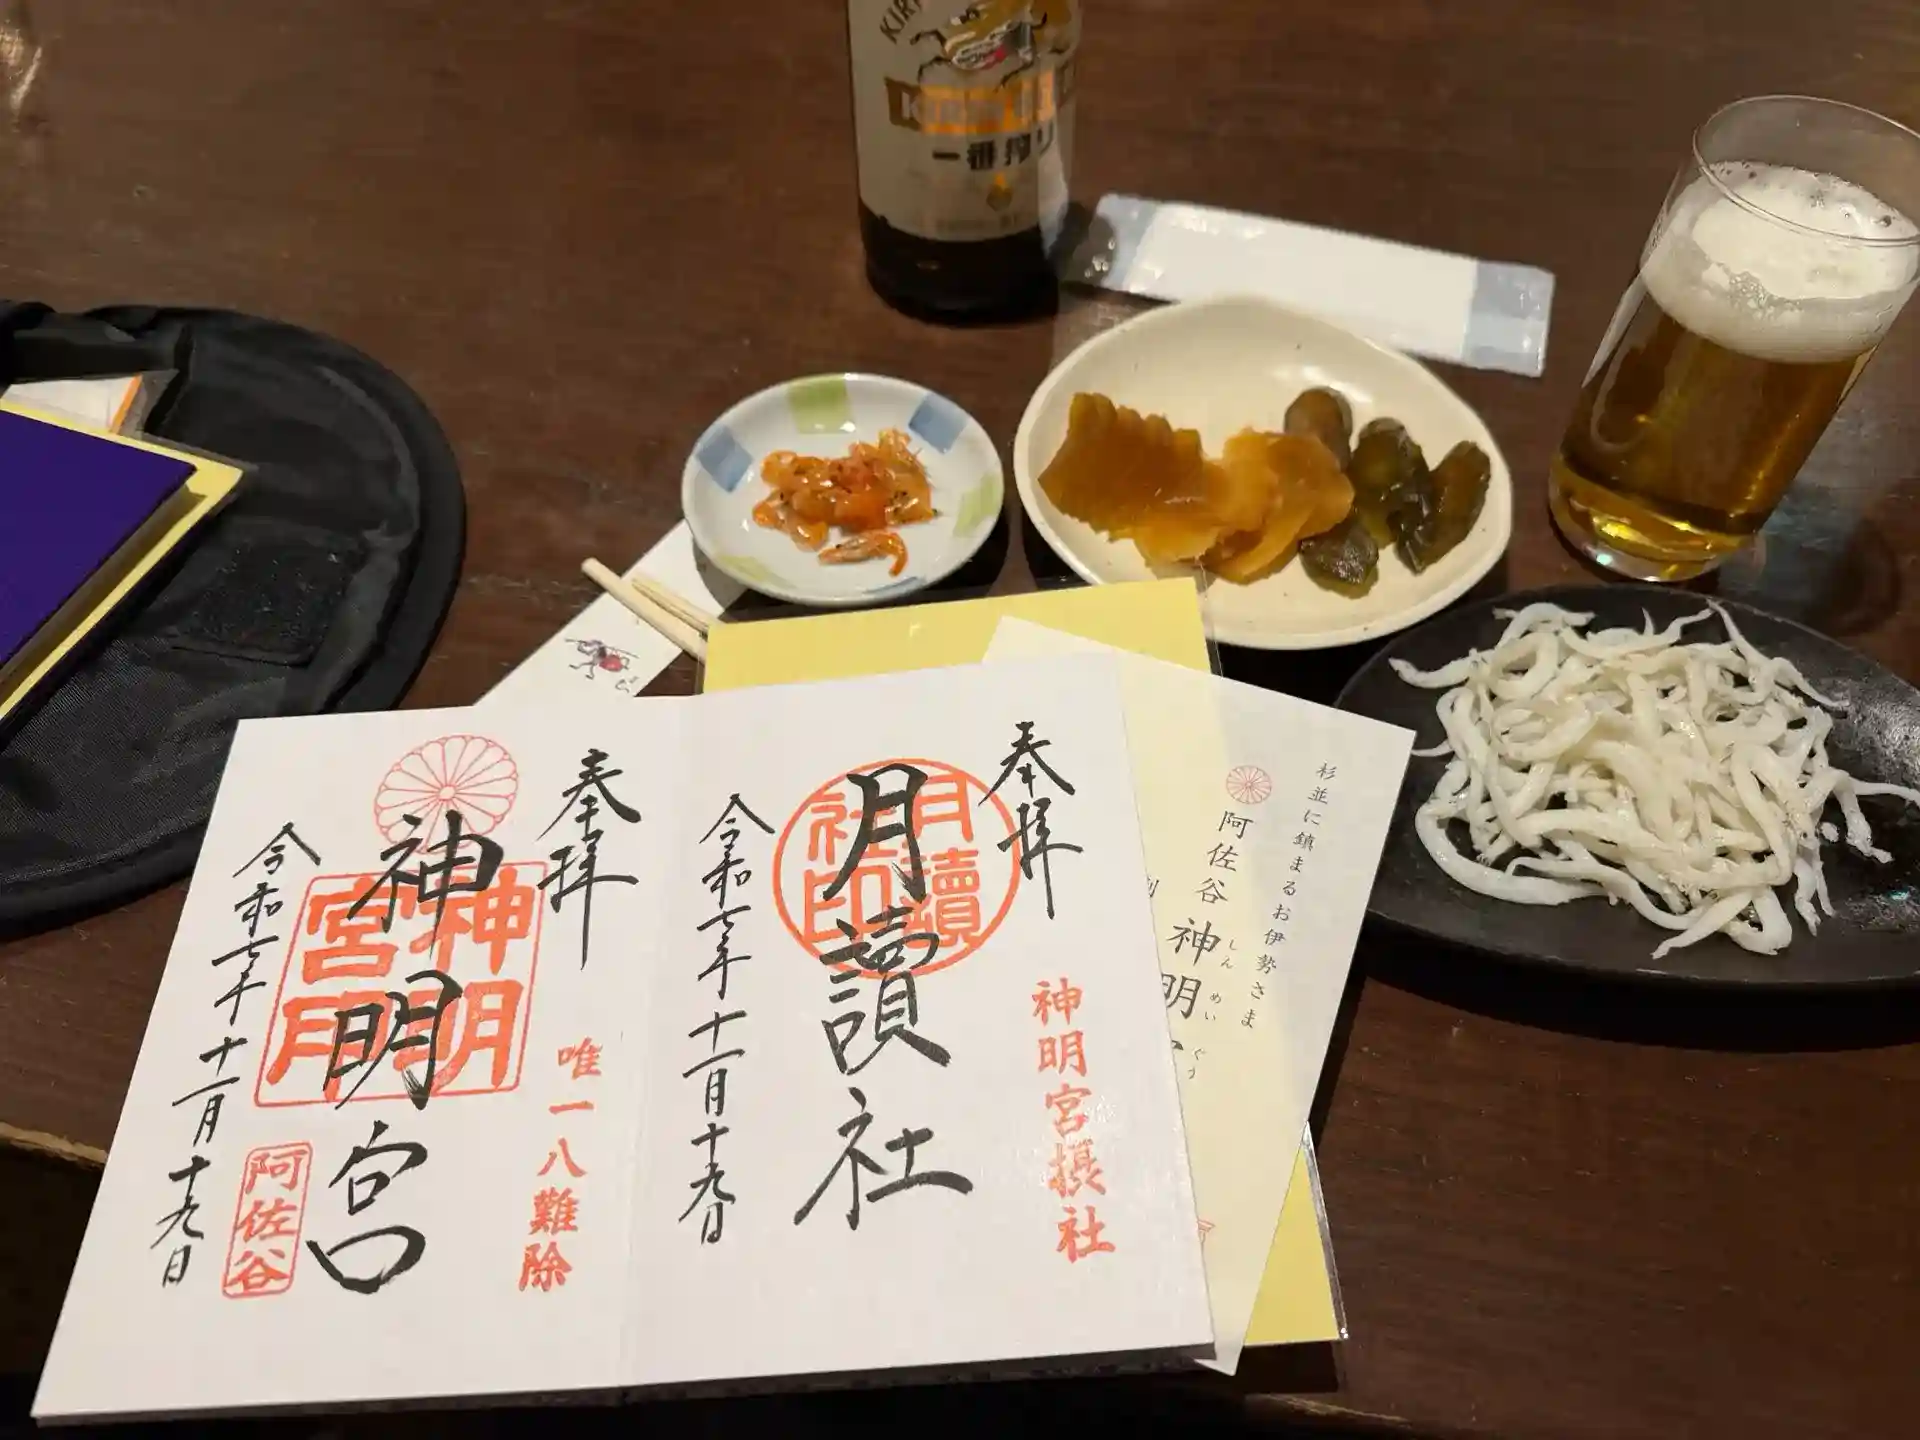 KIRIN
一番搾り
奉拝
月讀社
月讀社印
令和七年十一月十九日
神明宮摂社
奉拝
神明宮
神明宮印
唯一八難除
令和七年十一月十九日
阿佐谷
杉並に鎮まるお伊勢さま
阿佐谷
神明
しんめいぐう